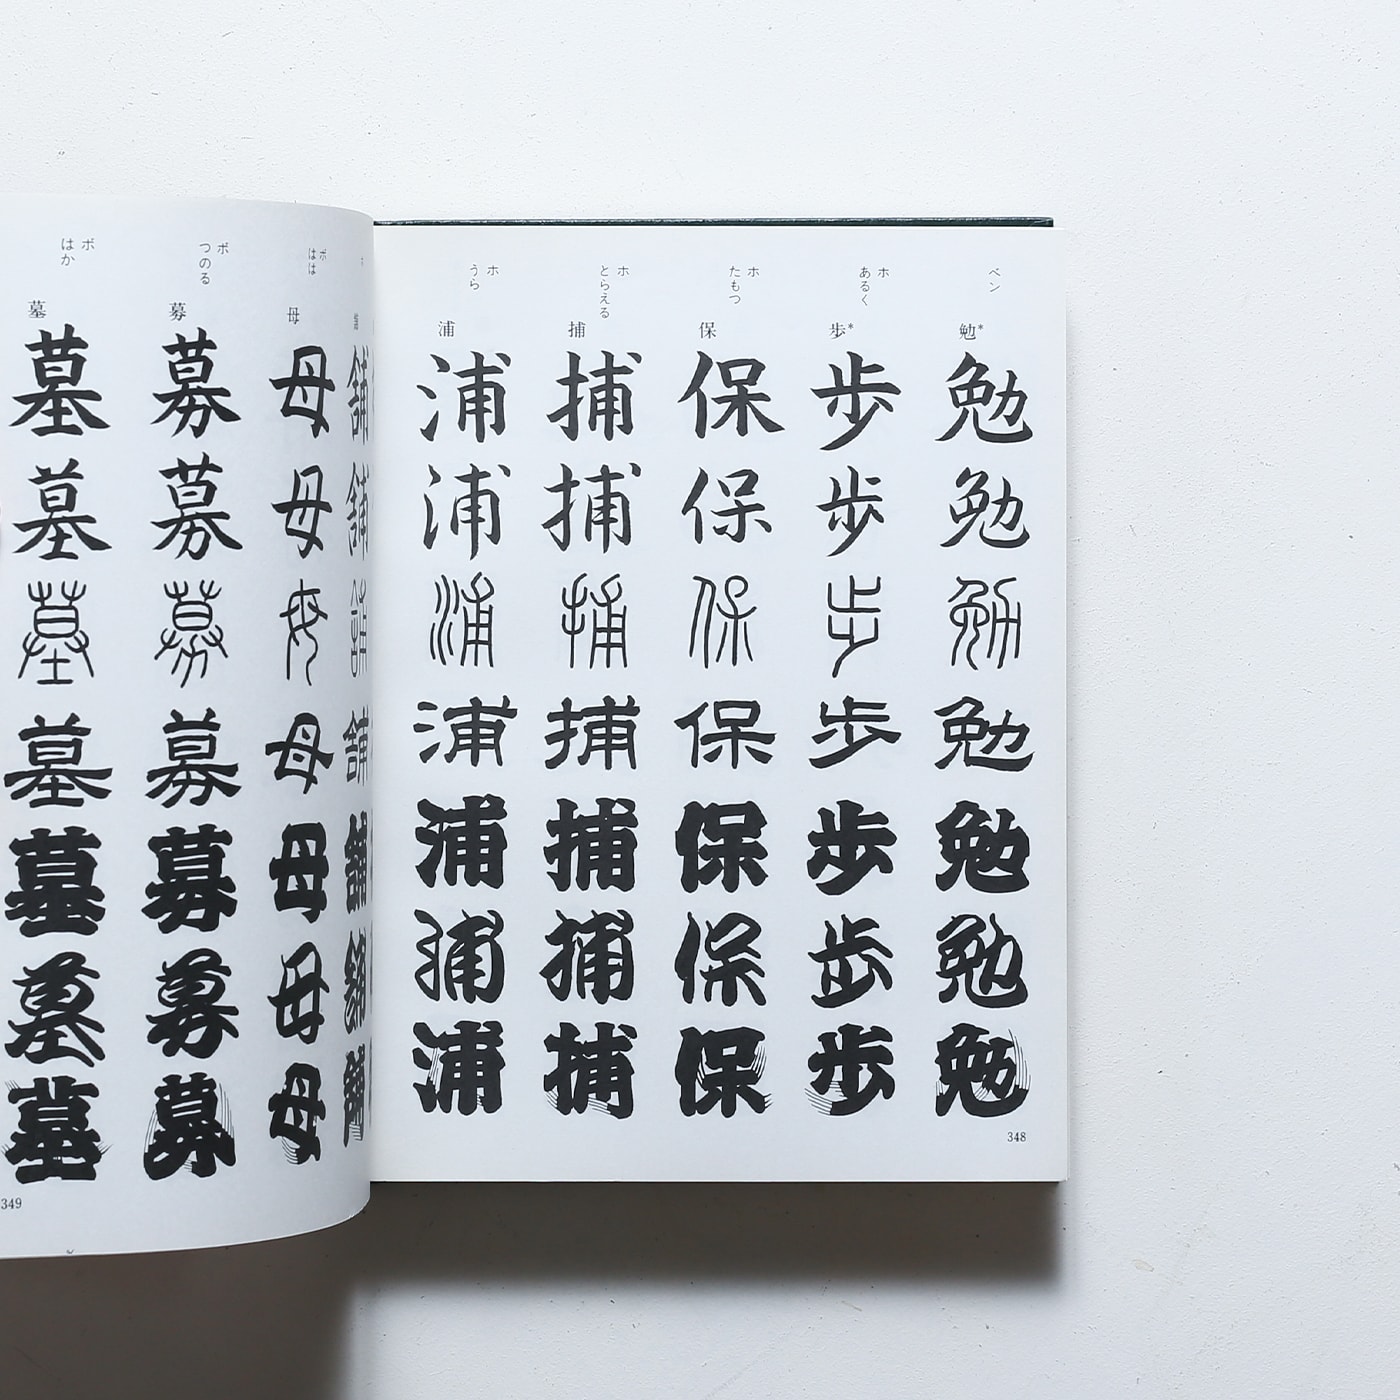 ベン
勉*
勉
勉
勉
勉
勉
勉
勉
ホ
あるく
歩*
歩
歩
歩
歩
歩
歩
歩
ホ
たもつ
保
保
保
保
保
保
保
保
ホ
とらえる
捕
捕
捕
捕
捕
捕
捕
捕
ホ
うら
浦
浦
浦
浦
浦
浦
浦
浦
348
舗
舗
舗
舗
舗
舗
舗
舗
ボ
はは
母
母
母
母
母
母
母
母
ボ
つのる
募
募
募
募
募
募
募
募
ボ
はか
墓
墓
墓
墓
墓
墓
墓
墓
349